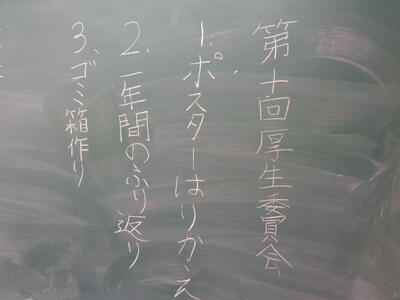 第十回厚生委員会
1.ポスターはりかえ
2.一年間のふり返り
3.ゴミ箱作り